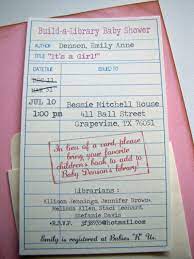 Build-a-Library Baby Shower
AUTHOR Denson, Emily Anne
TITLE "It's a Girl!"
DATE DUE ISSUED TO
DEC 11
MAR 31
JUL 10 Bessie Mitchell House
1:00 pm 411 Ball Street
Grapevine, TX 76051
In lieu of a card, please
bring your favorite
children's book to add to
Baby Denson's library!
Librarians:
Allison Jennings, Jennifer Brown,
Melissa Allen, Staci Leonard,
Stefanie Davis
R.S.V.P. @hotmail.com
Emily is registered at Babies "R" Us.